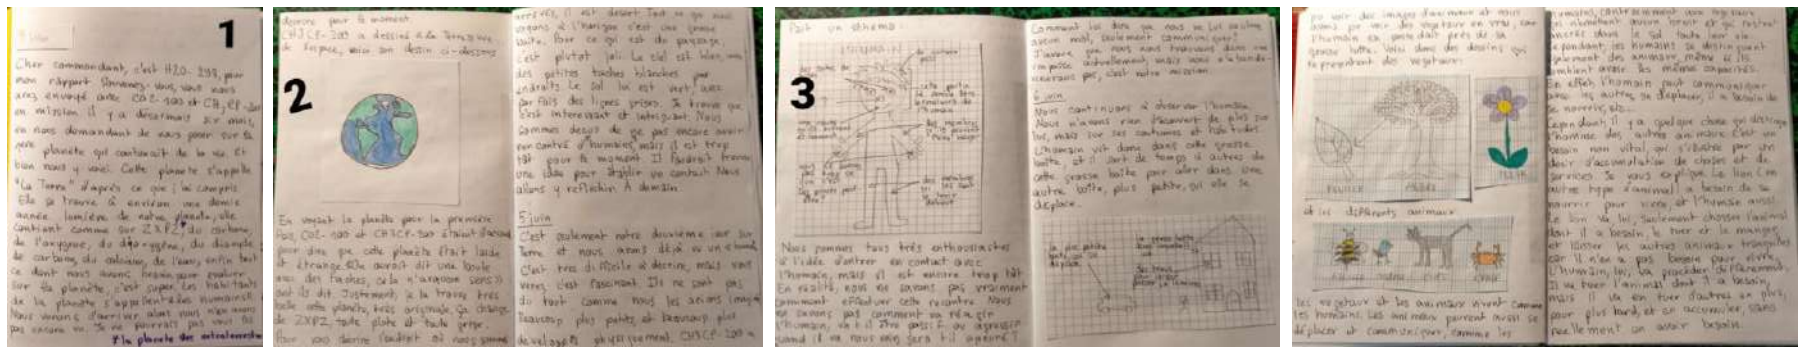 1
Cher commandant, c'est H2O-298, pour
mon rapport. Souvenez-vous, vous nous
avez envoyé avec CO2-100 et CH3CP-200
en mission il y a désormais six mois,
en nous demandant de nous poser sur la
1ère planète qui contenait de la vie. Et
bien nous y voici. Cette planète s'appelle
"La Terre" d'après ce que j'ai compris
Elle se trouve à environ une demie
année lumière de notre planète, elle
contient comme sur ZXPZ* du carbone,
de l'oxygène, du dioxygène, du dioxyde
de carbone, du calcium, de l'eau, enfin tout
ce dont nous avons besoin pour évoluer
sur la planète, c'est super. Les habitants
de la planète s'appellent "les humains".
Nous venons d'arriver alors nous n'en avons
pas encore vu. Je ne pourrais pas vous les
* la planète des extraterrestres
2
décrire pour le moment.
CH3CP-200 a dessiné la Terre vue
de l'espace, voici son dessin ci-dessous
En voyant la planète pour la première
fois, CO2-100 et CH3CP-200 étaient d'accord
pour dire que cette planète était laide
et étrange. "Elle aurait dit une boule
avec des taches, cela n'a aucun sens"
ont-ils dit. Justement, je la trouve très
belle cette planète, très originale, ça change
de ZXPZ, toute plate et toute grise.
Pour vous décrire l'endroit où nous sommes
arrivés, il est désert. Tout ce que nous
voyons à l'horizon c'est une grosse
boîte. Pour ce qui est du paysage,
c'est plutôt joli. Le ciel est bleu, avec
des petites taches blanches par
endroits. Le sol lui est vert, avec
parfois des lignes grises. Je trouve que
c'est intéressant et intrigant. Nous
sommes déçus de ne pas encore avoir
rencontré d'humains, mais il est trop
tôt pour le moment. Il faudrait trouver
une idée pour établir un contact. Nous
allons y réfléchir. A demain
5 juin
C'est seulement notre deuxième jour sur
Terre et nous avons déjà vu un humain
C'est très difficile à décrire, mais vous
verrez, c'est fascinant. Ils ne sont pas
du tout comme nous les avions imaginé
Beaucoup plus petits, et beaucoup plus
développés physiquement. CH3CP-200 a
3
fait un schéma:
Nous sommes tous très enthousiastes
à l'idée d'entrer en contact avec
l'humain, mais il est encore trop tôt.
En réalité, nous ne savons pas vraiment
comment effectuer cette rencontre. Nous
ne savons pas comment va réagir
l'humain, va t-il être passif ou agressif
quand il va nous voir, sera t-il apeuré?
Comment lui dire que nous ne lui voulons
aucun mal, seulement communiquer?
J'avoue que nous nous trouvons dans une
impasse actuellement, mais nous n'abandon-
nerons pas, c'est notre mission.
6 juin
Nous continuons à observer l'humain.
Nous n'avons rien découvert de plus sur
lui, mais sur ses coutumes et habitudes.
L'humain vit donc dans cette grosse
boîte, et il sort de temps à autres de
cette grosse boîte pour aller dans une
autre boîte, plus petite, qui elle se
déplace.
pu voir des images d'animaux et nous
avons pu voir des végétaux en vrai, car
l'humain en possédait près de sa
grosse boîte. Voici donc des dessins qui
représentent des végétaux:
FEUILLE
ARBRE
FLEUR
et les différents animaux
ABEILLE
OISEAU
CHAT
CRABE
Les végétaux et les animaux vivent comme
les humains. Les animaux peuvent aussi se
déplacer et communiquer, comme les
humains, contrairement aux végétaux
qui n'émettent aucun bruit et qui restent
ancrés dans le sol toute leur vie
Cependant, les humains se distinguent
également des animaux, même si ils
semblent avoir les mêmes capacités.
En effet, l'humain peut communiquer
avec les autres, se déplacer, il a besoin de
se nourrir, etc.
Cependant, il y a quelque chose qui distingue
l'homme des autres animaux. C'est un
besoin non vital, qui s'illustre par un
désir d'accumulation de choses et de
services. Je vous explique. Le lion (un
autre type d'animal) a besoin de se
nourrir pour vivre, et l'humain aussi.
Le lion va, lui, seulement chasser l'animal
dont il a besoin, le tuer et le manger,
et laisser les autres animaux tranquilles
car il n'en a pas besoin pour vivre.
L'humain, lui, va procéder différemment.
Il va tuer l'animal dont il a besoin,
mais il va en tuer d'autres en plus,
pour plus tard, et en accumuler, sans
réellement en avoir besoin.